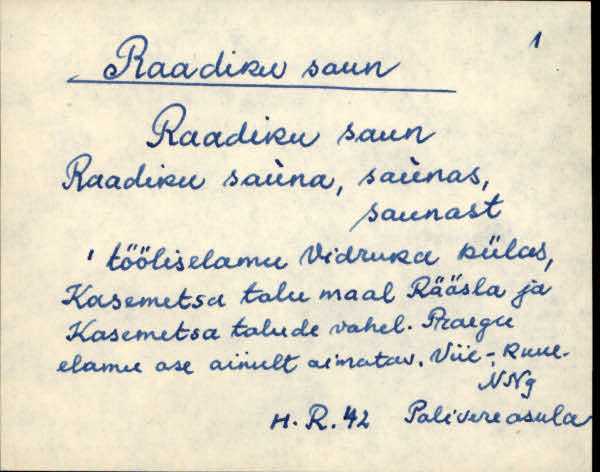 1
Raadiku saun
Raadiku saun
Raadiku saùna, saùnas,
saunast
' tööliselamu Vidruka külas,
Kasemetsa talu maal Rääsla ja
Kasemetsa talude vahel. Praegu
elamu ase ainult aimatav. Viie-kuue-
NNg
H. R. 42 Palivere asula